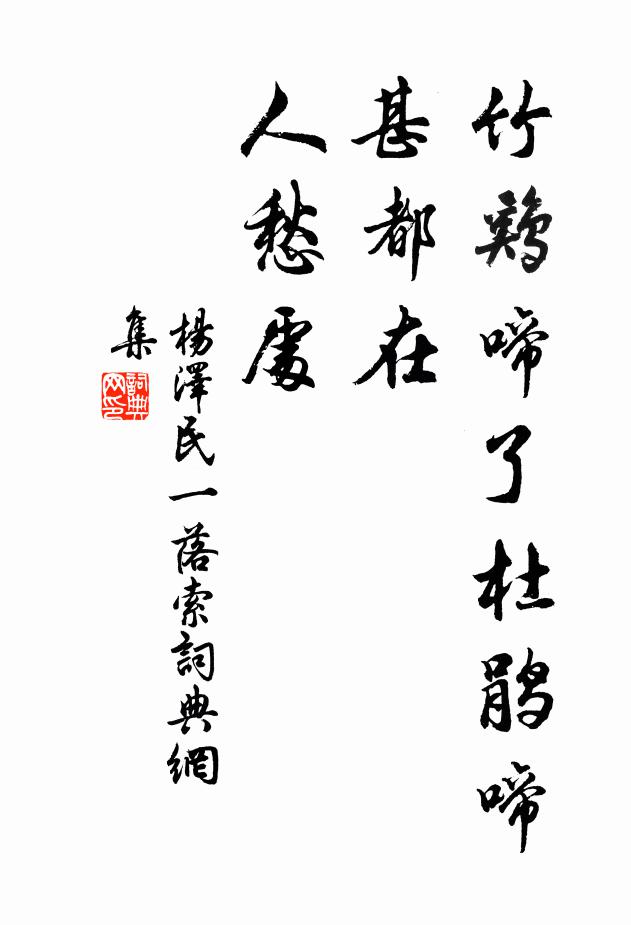 竹鷄啼了杜鵑啼
甚都在
人愁處
楊澤民一落索詞典網
集
詞典网印